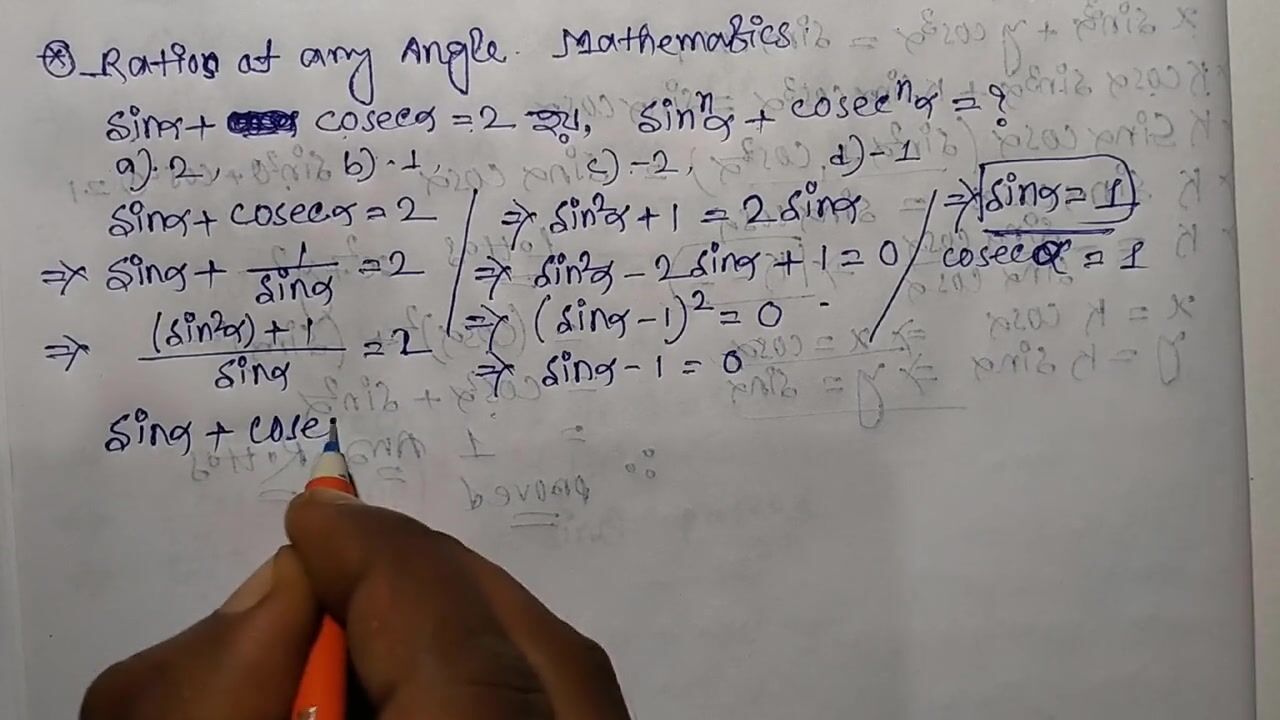 ⊛ Ration at any Angle. Mathematics
sinα + cosecα = 2 হয়, sinⁿα + cosecⁿα = ?
a) 2, b) -1, c) -2, d) -1
sinα + cosecα = 2
⇒ sinα + 1/sinα = 2
⇒ (sin²α) + 1 / sinα = 2
⇒ sin²α + 1 = 2 sinα
⇒ sin²α - 2 sinα + 1 = 0
⇒ (sinα - 1)² = 0
⇒ sinα - 1 = 0
⇒ sinα = 1
cosecα = 1
sinα + cose